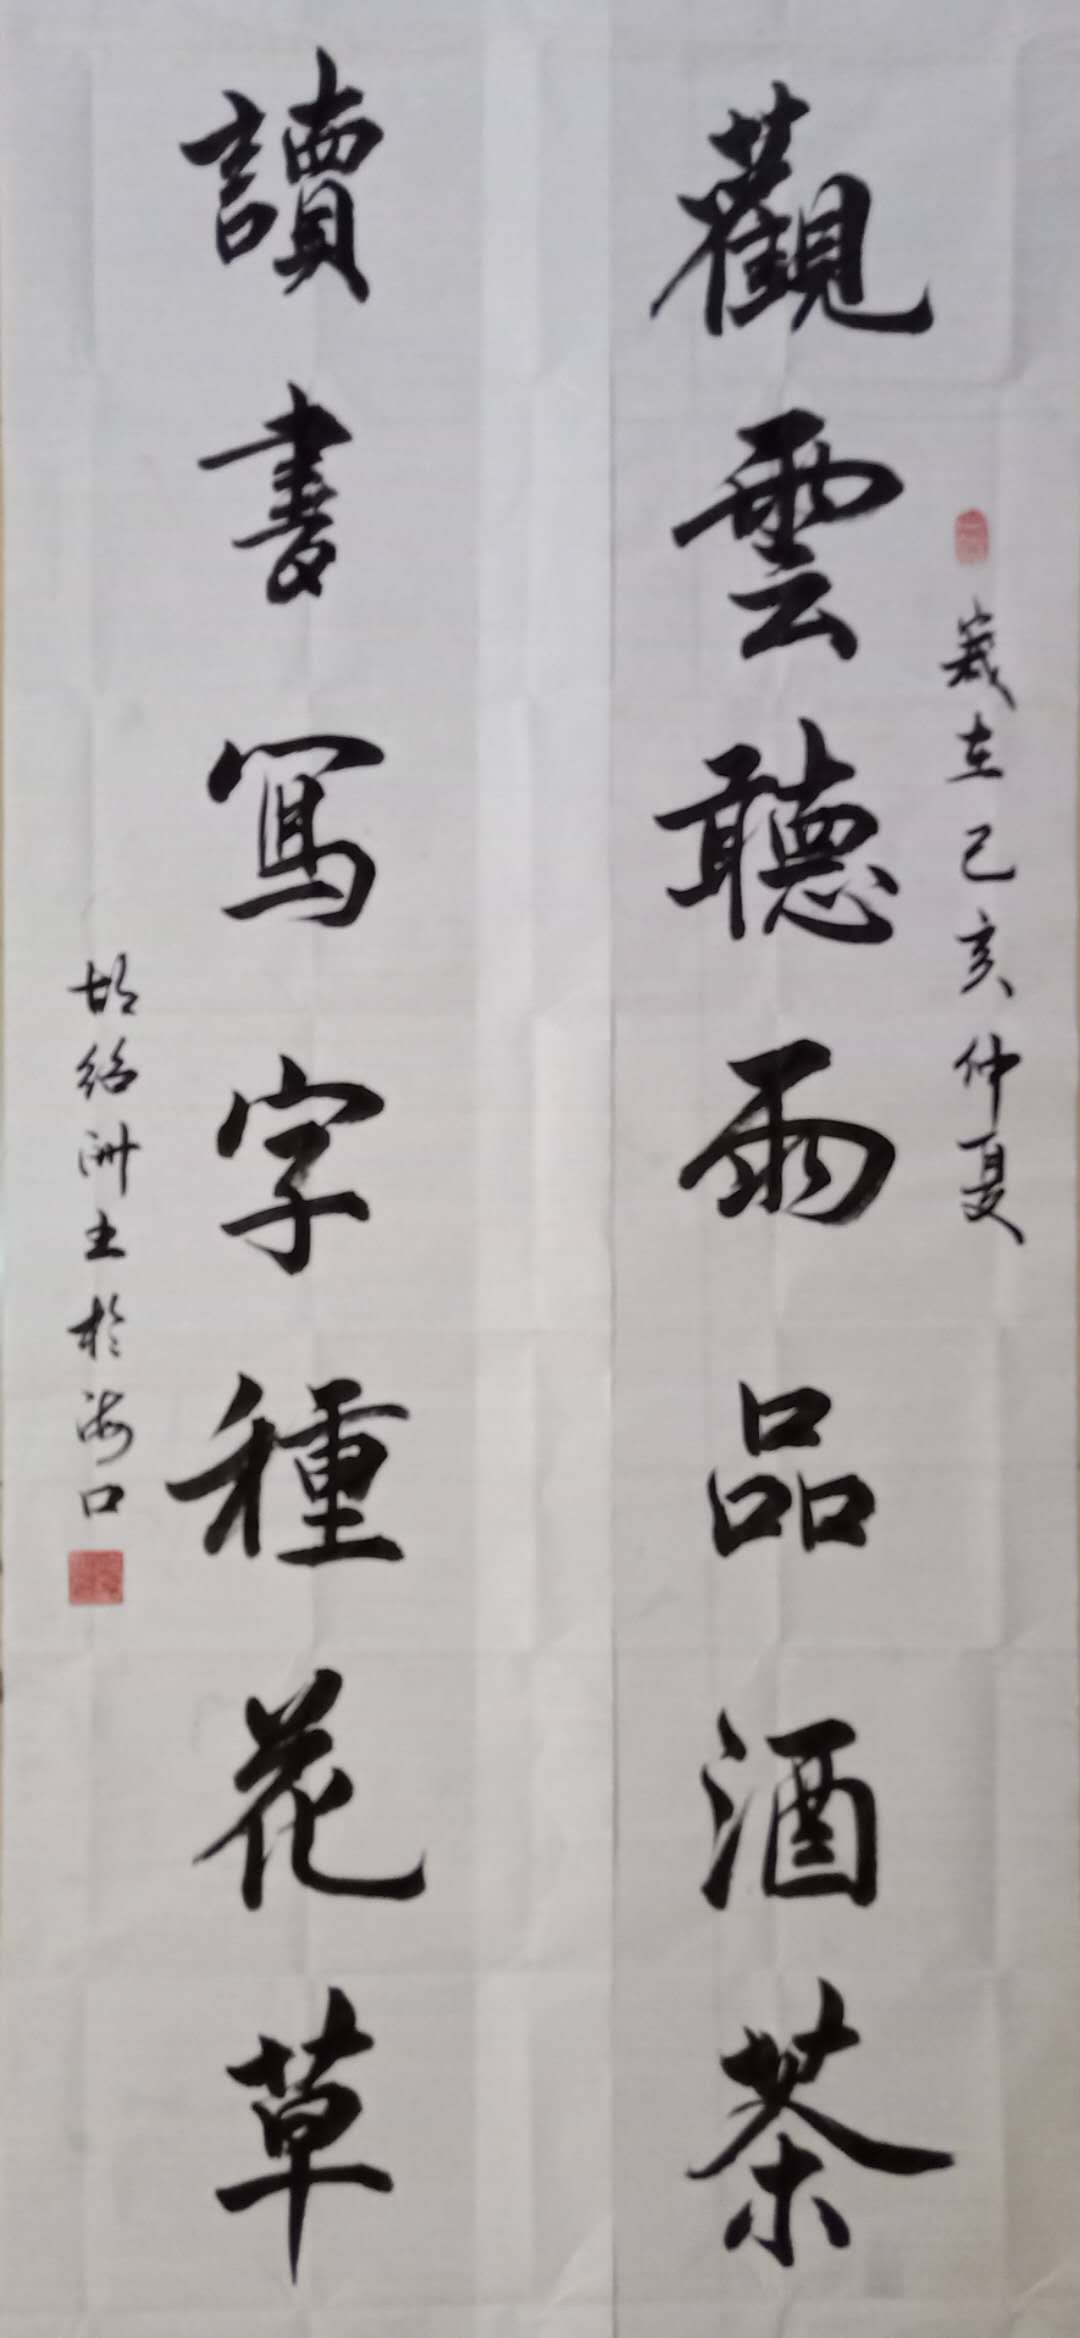 觀雲聽雨品酒茶
歲在己亥仲夏
讀書寫字種花草
胡紹洲書於海口